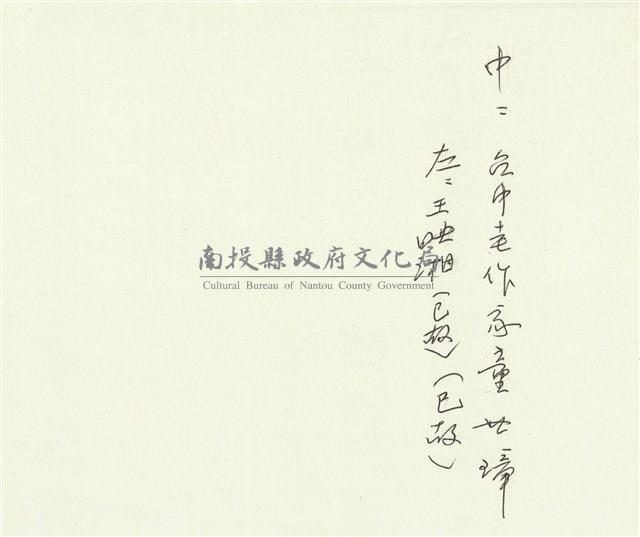 中：台中老作家童世璋
（已故）
左：王映湘（已故）
南投縣政府文化局
Cultural Bureau of Nantou County Government